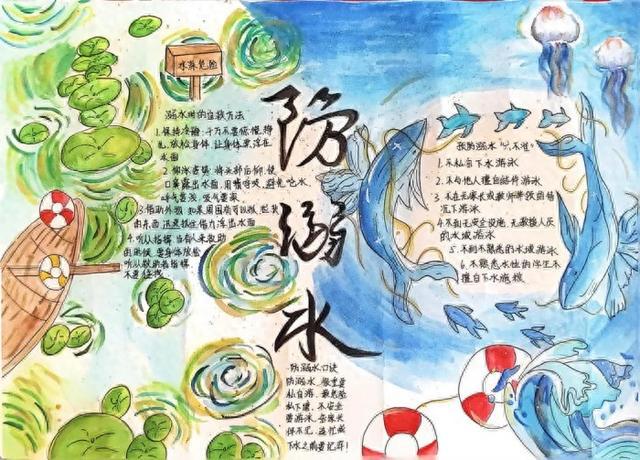 水深危险
防溺水
溺水时的自救方法
1.保持冷静:千万不要惊慌,挣
扎,放松身体,让身体漂浮在
水面
2.仰泳
口鼻露出水面,用嘴呼吸,避免呛水
呼气要浅,吸气要深
3.借助外物:如果周围有可以
由东西
4.听从指挥:当有人来救助
的时候,要身体放松
听从救助者指挥
不要
我防溺水"六不准"
1.不私自下水游泳
2.不与他人擅自结伴游泳
3.不在无家长或教师带领的情
况下游泳
4.不到无安全设施、无救援人员
的水域游泳
5.不到不熟悉的水域游泳
6.不熟悉水性的学生不
擅自下水施救
防溺水口诀
防溺水,很重要
私自游,最危险
私下塘,不安全
要游泳,告家长
伴不
下水之前要记牢!